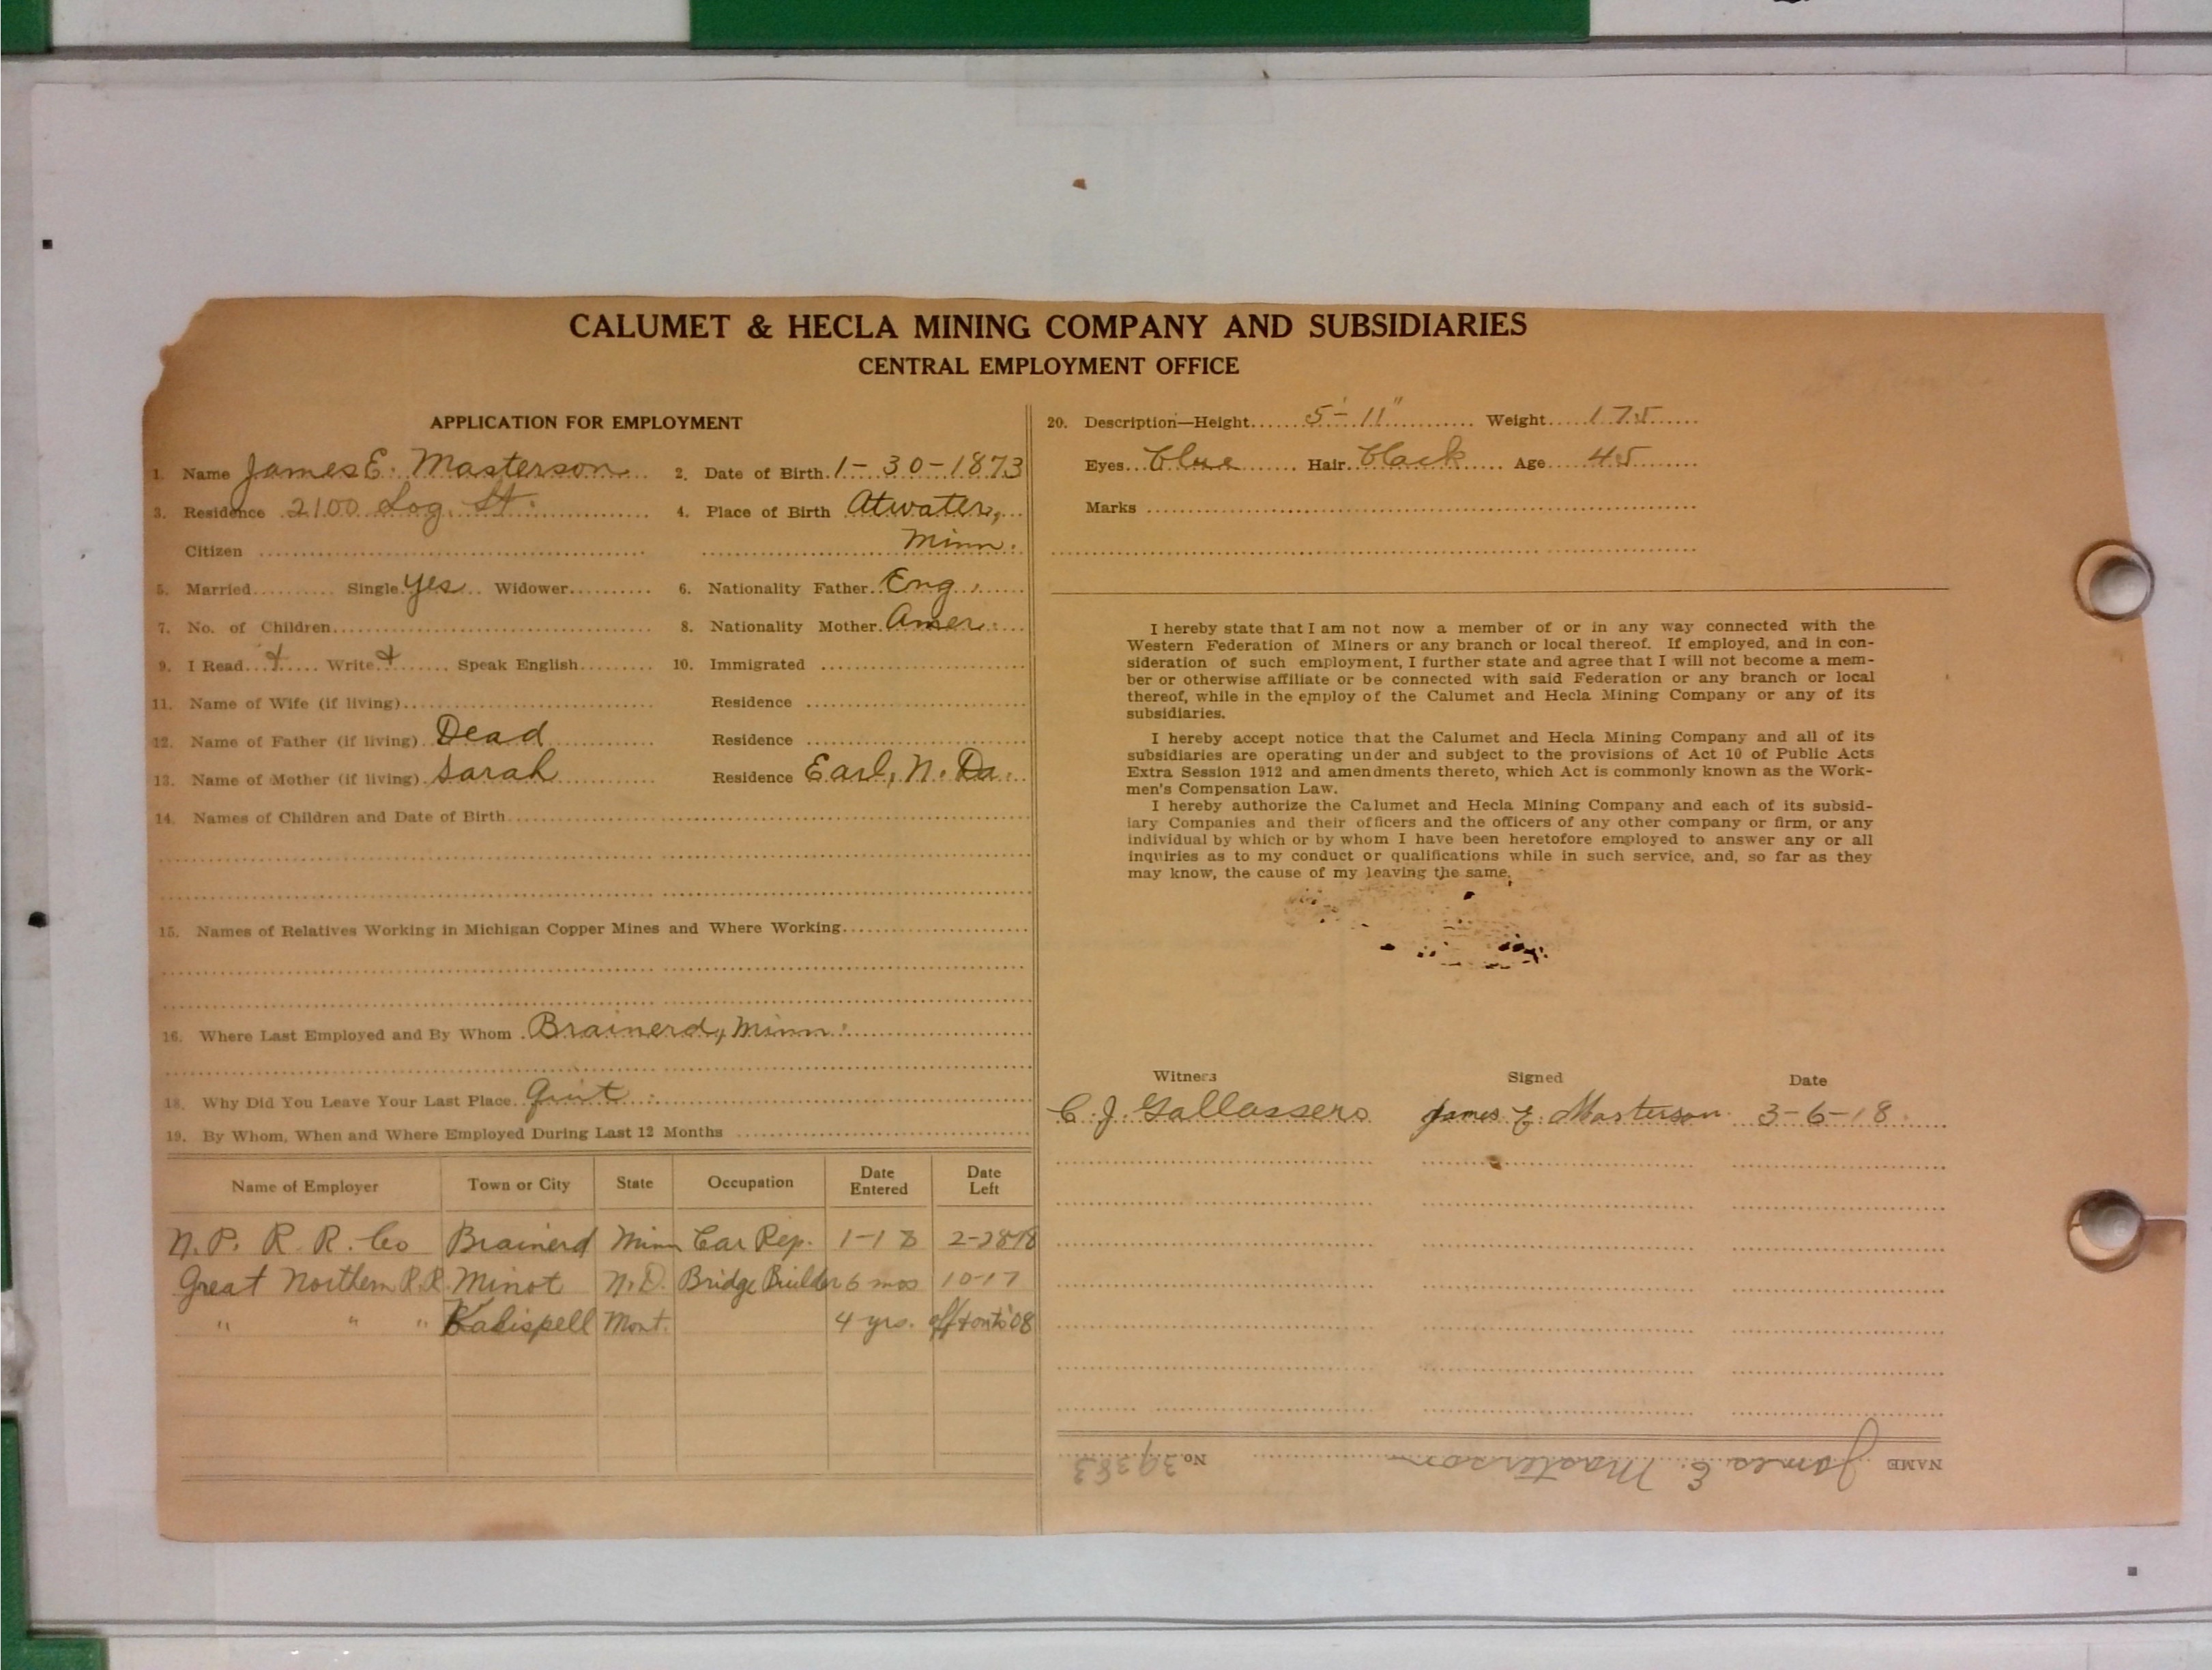 CALUMET & HECLA MINING COMPANY AND SUBSIDIARIES
CENTRAL EMPLOYMENT OFFICE
APPLICATION FOR EMPLOYMENT
1. Name James E. Masterson 2. Date of Birth 1-30-1873
3. Residence 2100 Log. St. 4. Place of Birth Atwater,
Citizen Minn.
5. Married Single yes Widower 6. Nationality Father Eng.
7. No. of Children 8. Nationality Mother Amer.
9. I Read + Write + Speak English 10. Immigrated
11. Name of Wife (if living) Residence
12. Name of Father (if living) Dead Residence
13. Name of Mother (if living) Sarah Residence Earl, N. Da.
14. Names of Children and Date of Birth
15. Names of Relatives Working in Michigan Copper Mines and Where Working
16. Where Last Employed and By Whom Brainerd, Minn.
18. Why Did You Leave Your Last Place Quit
19. By Whom, When and Where Employed During Last 12 Months
Name of Employer Town or City State Occupation Date Entered Date Left
N. P. R. R. Co Brainerd Minn Car Rep. 1-18 2-2818
Great Northern R.R. Minot N.D. Bridge Builder 6 mos 10-17
" " " Kalispell Mont. 4 yrs. '08
20. Description—Height 5'-11" Weight 175
Eyes blue Hair black Age 45
Marks
I hereby state that I am not now a member of or in any way connected with the
Western Federation of Miners or any branch or local thereof. If employed, and in con-
sideration of such employment, I further state and agree that I will not become a mem-
ber or otherwise affiliate or be connected with said Federation or any branch or local
thereof, while in the employ of the Calumet and Hecla Mining Company or any of its
subsidiaries.
I hereby accept notice that the Calumet and Hecla Mining Company and all of its
subsidiaries are operating under and subject to the provisions of Act 10 of Public Acts
Extra Session 1912 and amendments thereto, which Act is commonly known as the Work-
men's Compensation Law.
I hereby authorize the Calumet and Hecla Mining Company and each of its subsid-
iary Companies and their officers and the officers of any other company or firm, or any
individual by which or by whom I have been heretofore employed to answer any or all
inquiries as to my conduct or qualifications while in such service, and, so far as they
may know, the cause of my leaving the same.
Witness Signed Date
C. J. Gallassero James E. Masterson 3-6-18
NAME James E. Masterson No. 39383